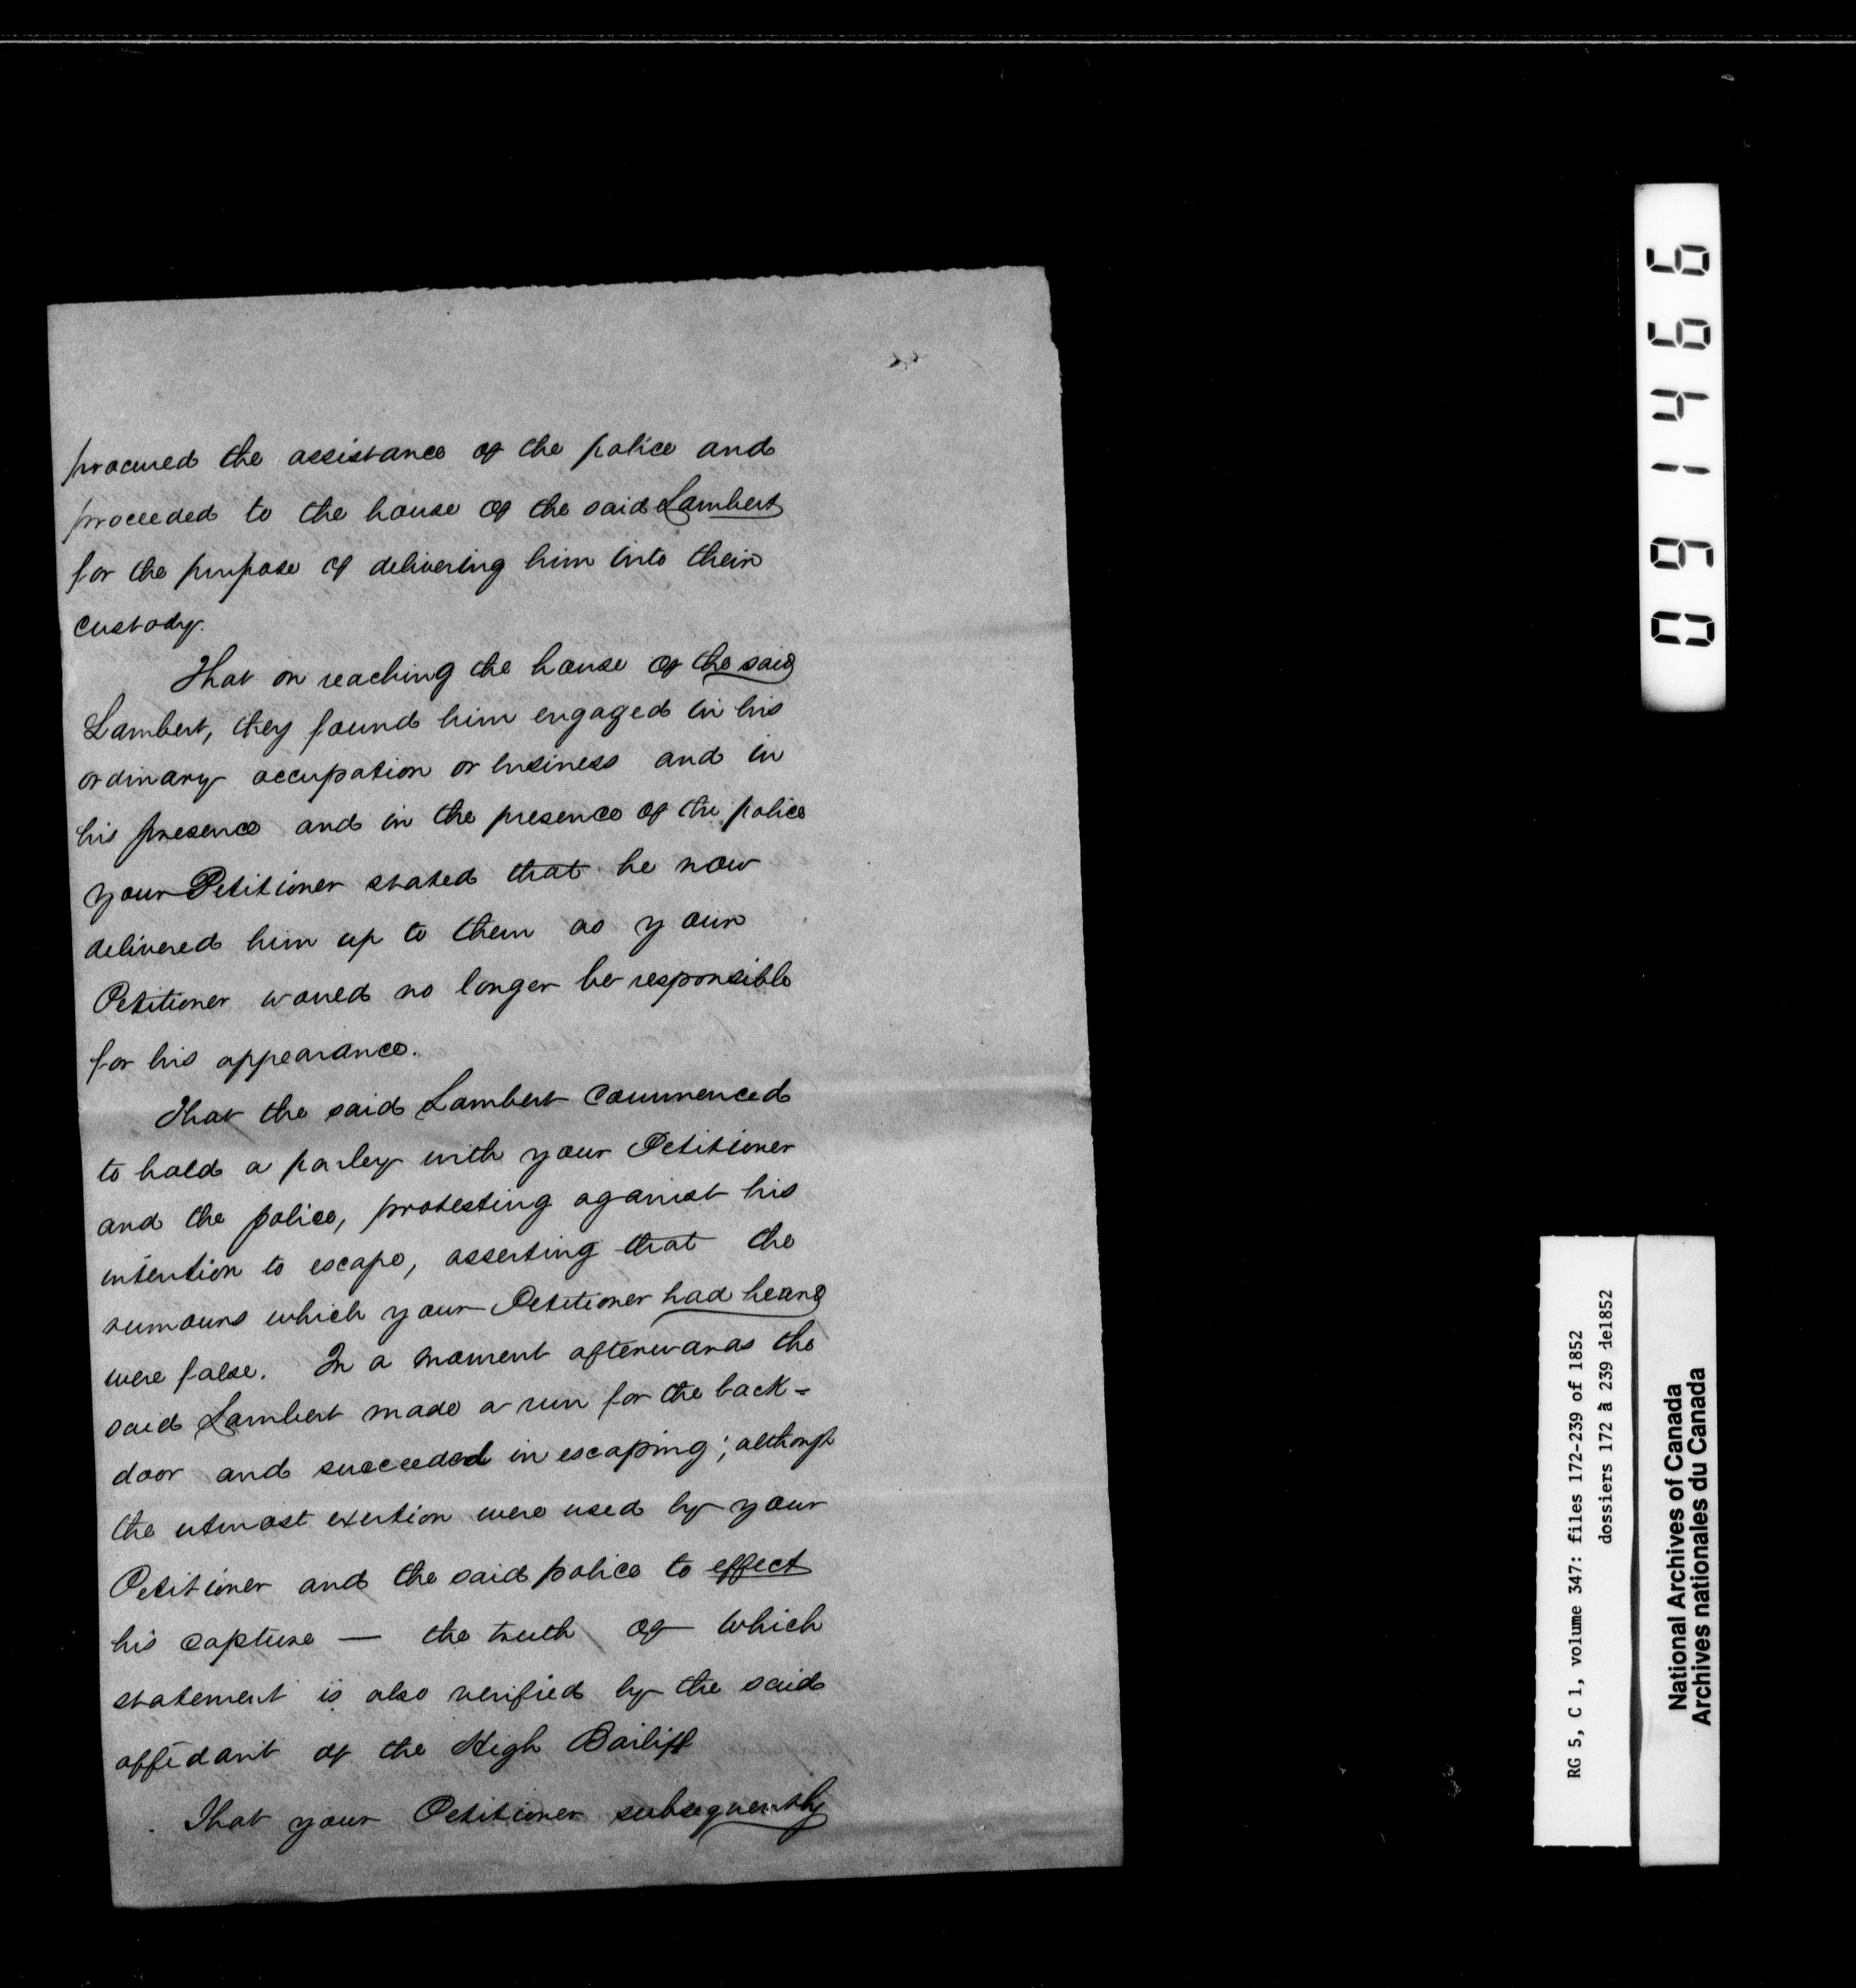 procured the assistance of the police and
proceeded to the house of the said Lambert
for the purpose of delivering him into their
custody.
That on reaching the house of the said
Lambert, they found him engaged in his
ordinary occupation or business and in
his presence and in the presence of the police
your Petitioner stated that he now
delivered him up to them as your
Petitioner would no longer be responsible
for his appearance.
That the said Lambert commenced
to hold a parley with your Petitioner
and the police, protesting against his
intention to escape, asserting that the
rumours which your Petitioner had heard
were false. In a moment afterwards the
said Lambert made a run for the back-
door and succeeded in escaping; although
the utmost exertion were used by your
Petitioner and the said police to effect
his capture — the truth of which
statement is also verified by the said
affidavit of the High Bailiff
That your Petitioner subsequently
091466
RG 5, C 1, volume 347: files 172-239 of 1852
dossiers 172 à 239 de1852
National Archives of Canada
Archives nationales du Canada